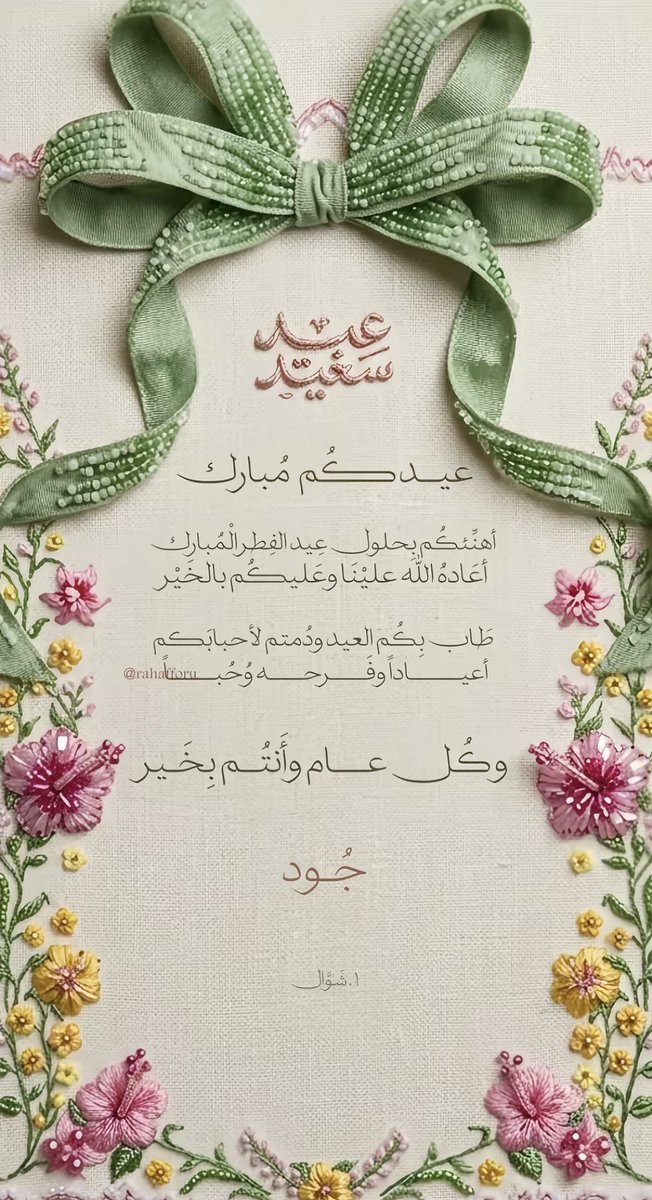 عيد
سَعِيد
عيدكُم مُبارك
أهنِّئكُم بِحلول عِيد الفِطر الْمُبارك
أعَادهُ اللَّه عليْنَا وعَليكُم بالخَيْر
طَاب بِكُم العيد ودُمتم لأحبابَكم
أعياداً وفَرحه وُحُباً @rahafforu
وكُل عام وأَنتُم بِخَير
جُود
١.شَوَّال